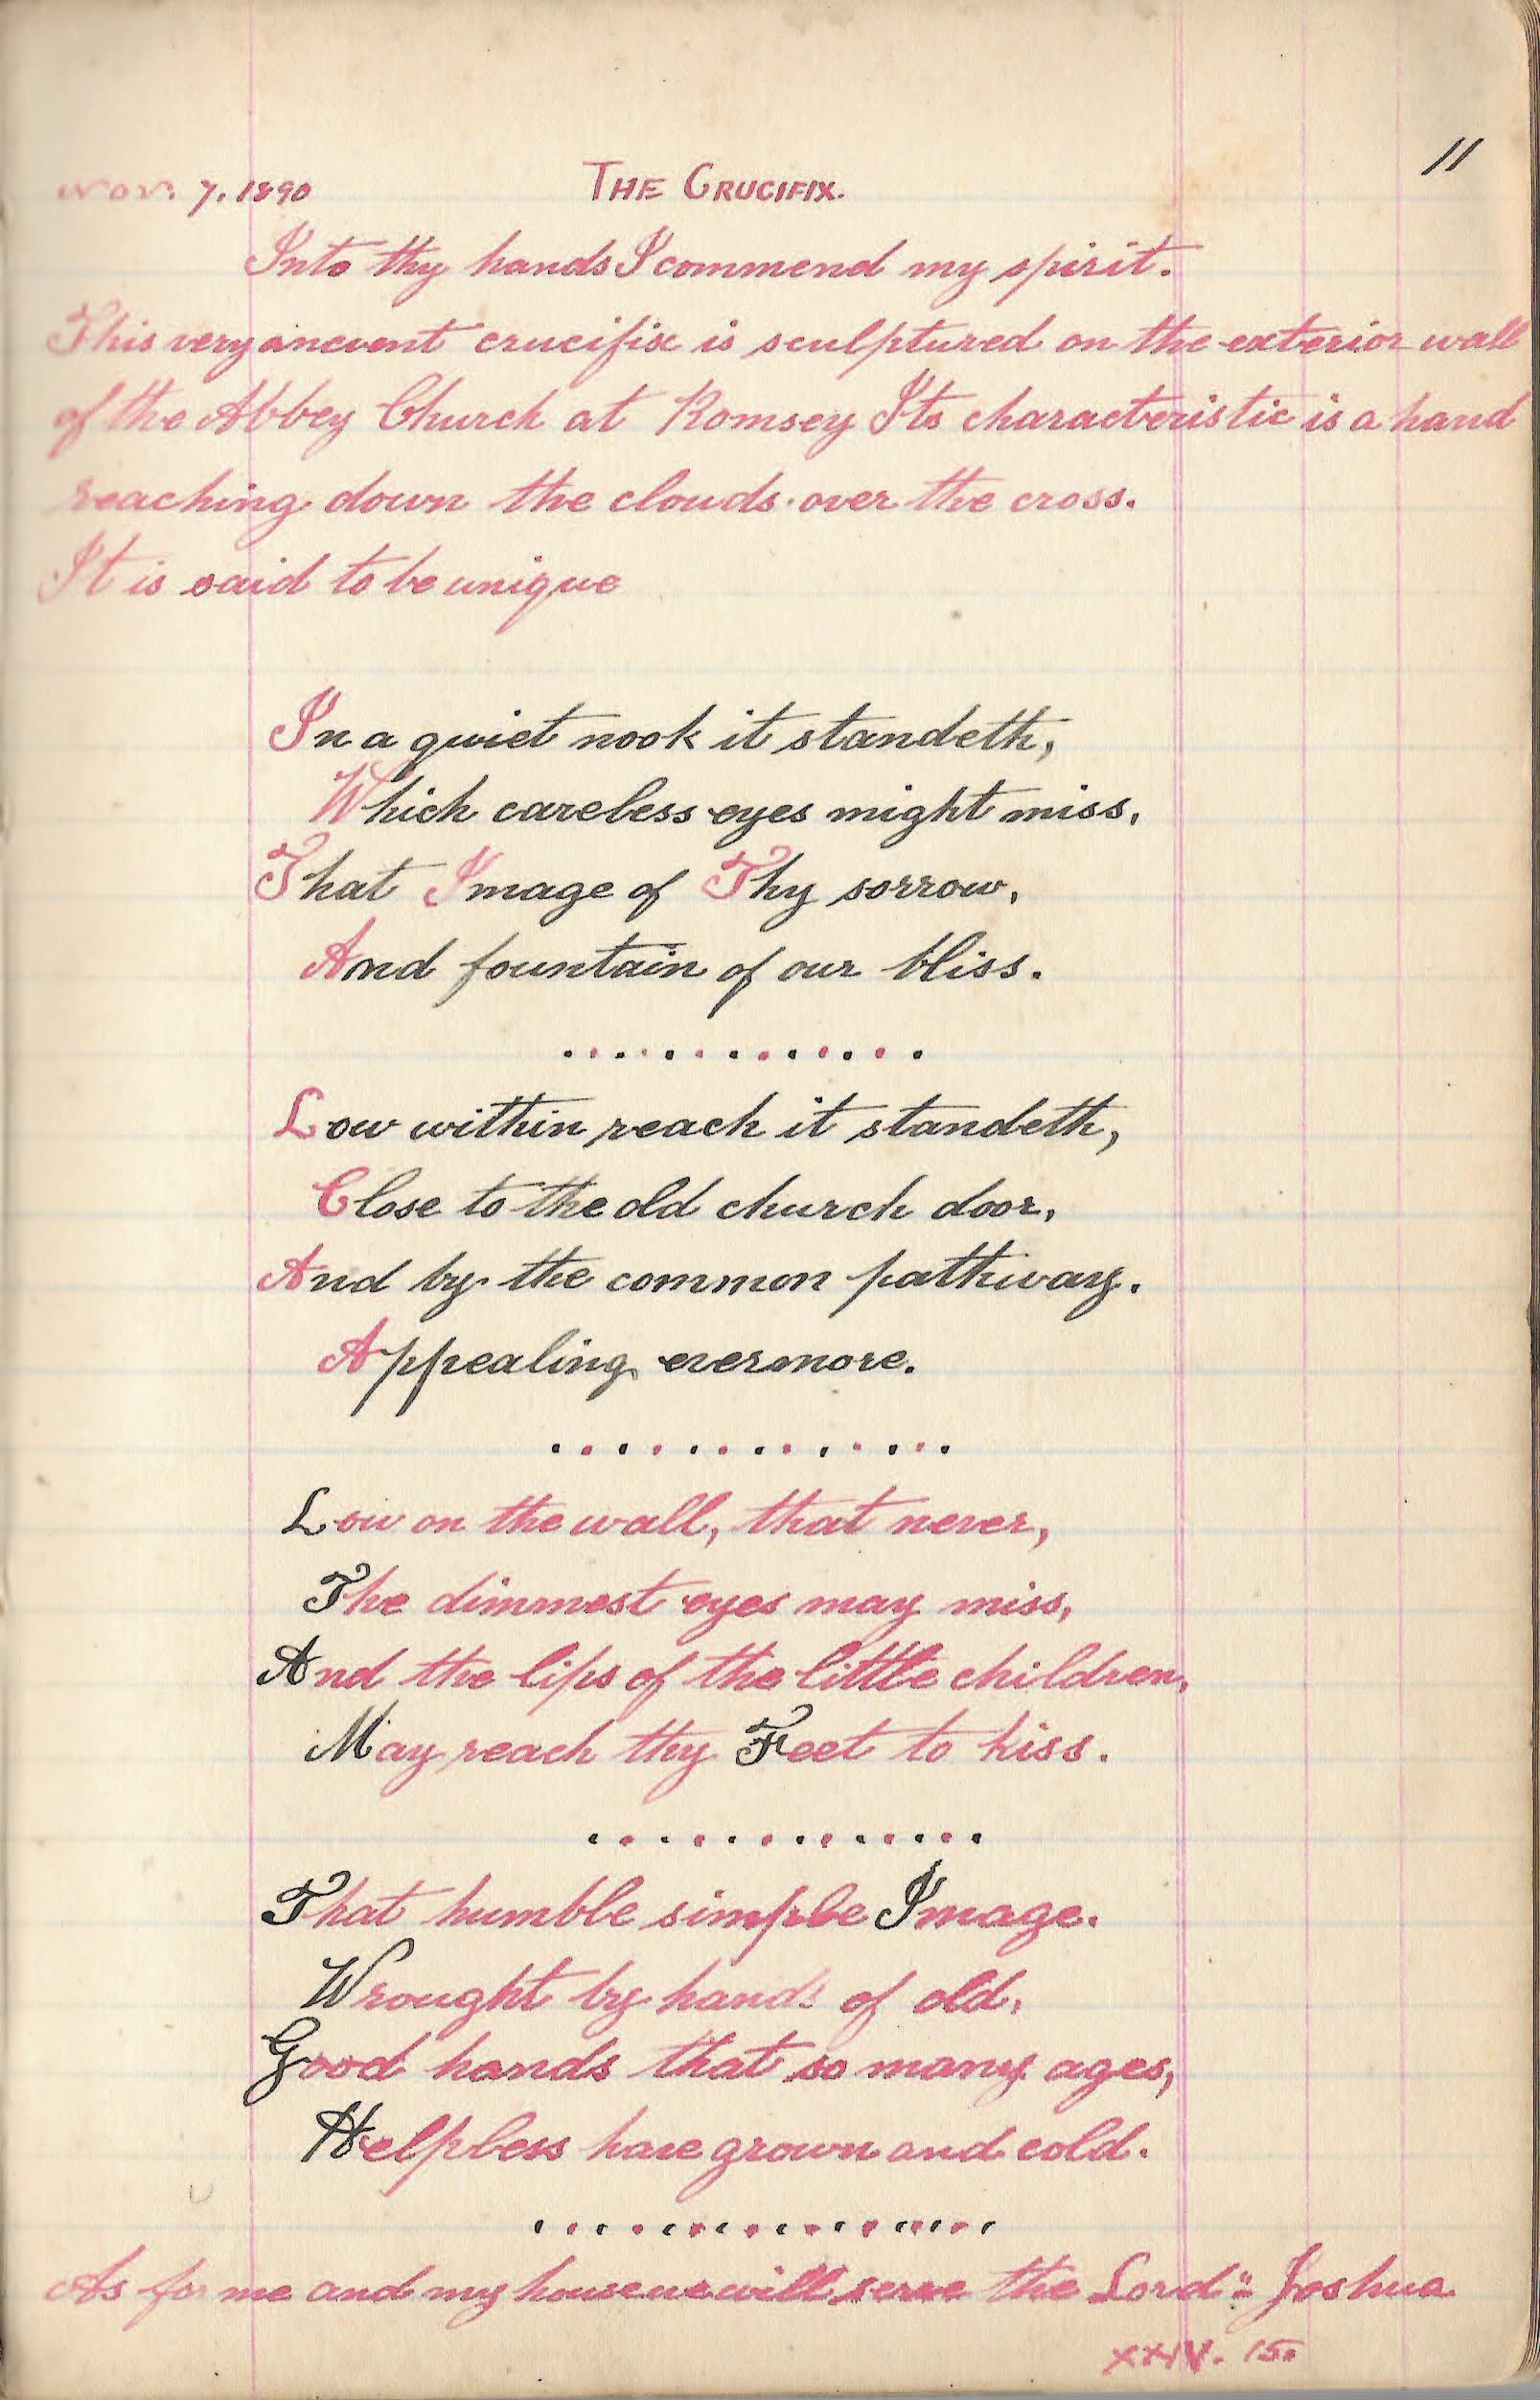 11
Nov. 7. 1890 THE CRUCIFIX.
Into thy hands I commend my spirit.
This very ancient crucifix is sculptured on the exterior wall
of the Abbey Church at Romsey Its characteristic is a hand
reaching down the clouds over the cross.
It is said to be unique
In a quiet nook it standeth,
Which careless eyes might miss,
That Image of Thy sorrow,
And fountain of our bliss.
..............
Low within reach it standeth,
Close to the old church door,
And by the common pathway.
Appealing evermore.
..............
Low on the wall, that never,
The dimmest eyes may miss,
And the lips of the little children,
May reach thy Feet to kiss.
..............
That humble simple Image.
Wrought by hands of old,
Good hands that so many ages,
Helpless have grown and cold.
................
As for me and my house we will serve the Lord" = Joshua
XXIV. 15.